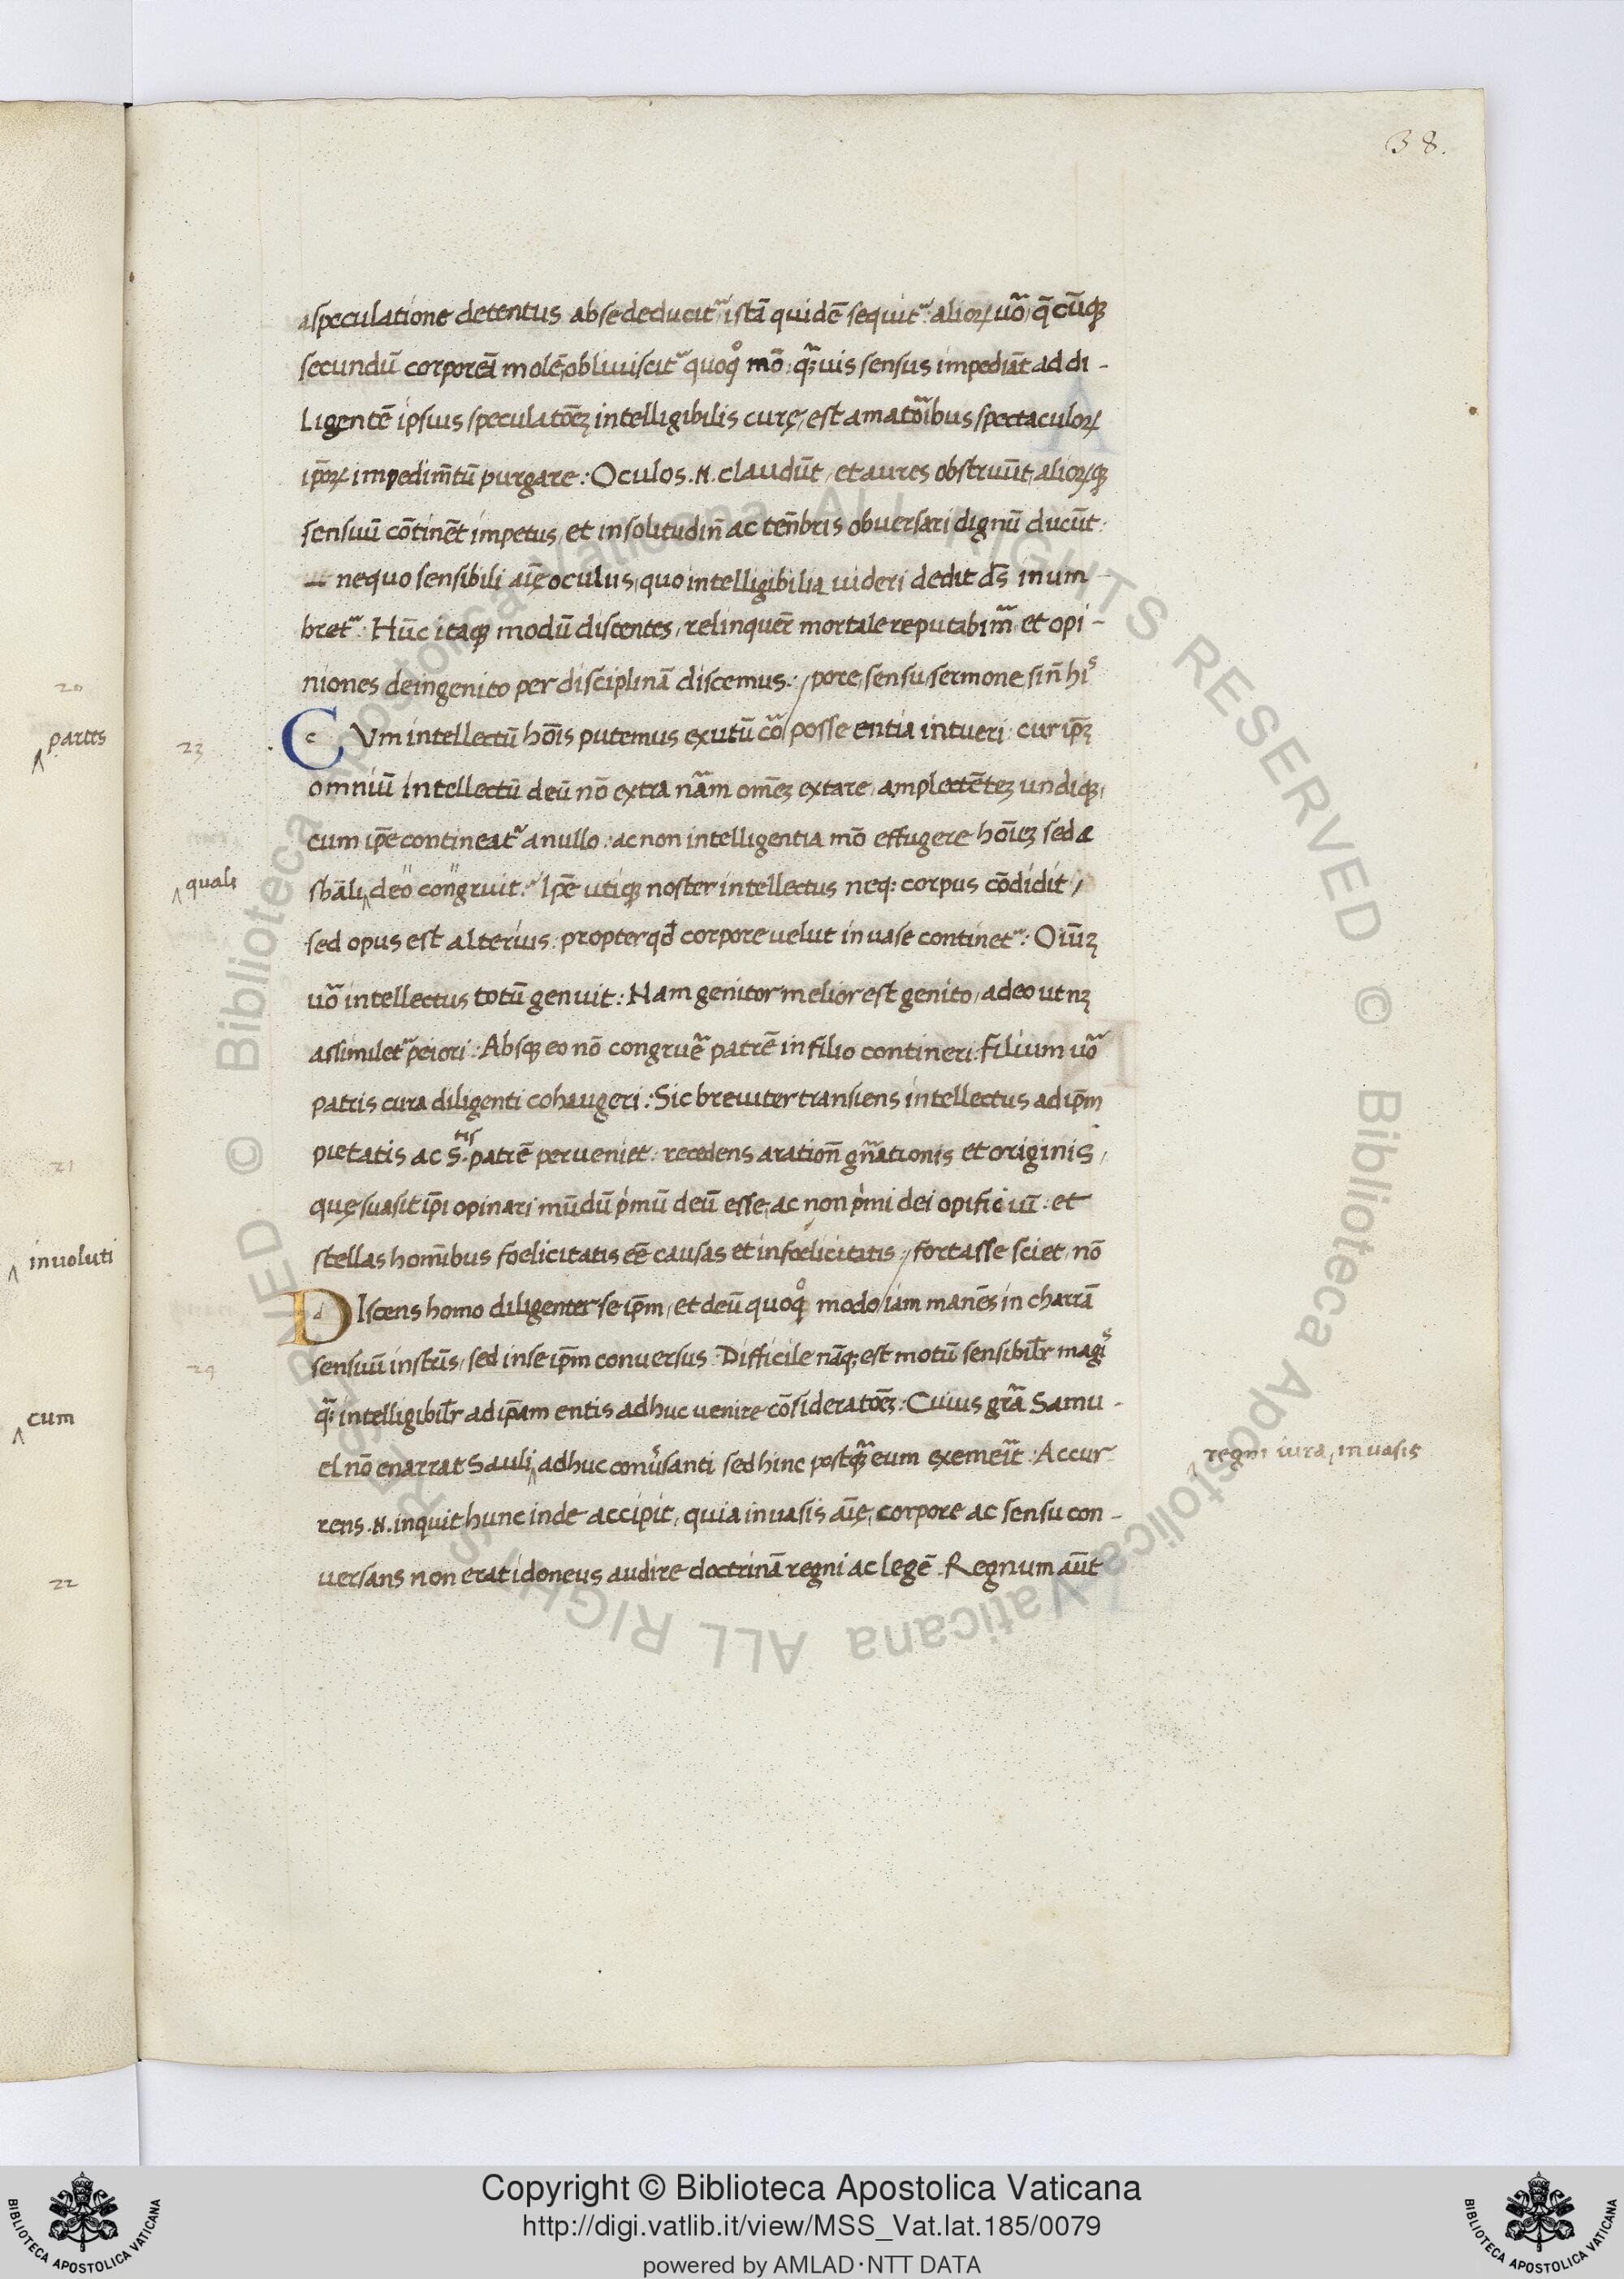 38.
a speculatione detentus ab se deducit᷑, istā quidē sequit᷑: alioꝝ uo᷑ q̄cūqꝫ
secundū corporeā molē, obliuiscit᷑ quoqͦ mō: qꝫ᷑uis sensus impediāt ad di-
Ligentē ipsius speculatōeꝫ intelligibilis curę, est amato᷑ibus spectaculoꝝ
ip̄oꝝ impedim̄tū purgare: Oculos .N. claudūt, et aures obstruūt, alioꝝqꝫ
sensuū cōtinēt impetus, et in solitudin̄ ac ten̄bris obuersari dignū ducūt:
ne quo sensibili aīę oculus, quo intelligibilia uideri dedit ds̄ inum-
bret᷑: Hūc itaqꝫ modū discentes, relinquer̄ mortale reputabim᷑, et opi-
niones de ingenito per disciplinā discemus: / pore, sensu, sermone, sin̄ hiˢ
20
partes
23
CVm intellectū hōis putemus exutū co᷑ / posse entia intueri: cur ip̄ꝫ
omniū intellectū deū nō extra na᷑m om̄eꝫ extare, amplectēteꝫ undiqꝫ,
cum ip̄e contineat᷑ a nullo: ac non intelligentia mō effugere hōieꝫ sed &
quali
sb̄ali, deo congruit: Ip̄e utiqꝫ noster intellectus neqꝫ corpus cōdidit,
sed opus est alterius: propter qd̄ corpore uelut in uase continet᷑: Oīūꝫ
uo᷑ intellectus totū genuit: Nam genitor melior est genito, adeo ut nꝫ
assimilet᷑ peiori: Absqꝫ eo nō congrue᷑ patrē in filio contineri: filium uo᷑
patris cura diligenti cohaugeri: Sic breuiter transiens intellectus ad ip̄m
pietatis ac S.ᵗⁱˢ patrē perueniet: recedens a ration̄ gn᷑ationis et originis,
21
quę suasit ip̄i opinari mūdū pⁱmū deū esse, ac non pⁱmi dei opificiū: et
stellas homībus foelicitatis eē causas et infoelicitatis: / fortasse sciet, nō
inuoluti
DIscens homo diligenter se ip̄m, et deū quoqͦ modo / iam manēs in charrā
24
sensuū instrīs, sed in se ip̄m conuersus: Difficile nāqꝫ est motū sensibilr̄ magˢ
qꝫ᷑ intelligibilr̄ ad ip̄am entis adhuc uenire cōsideratōeꝫ: Cuius gr᷑a Samu-
cum
el nō enarrat Sauli, adhuc conuˢsanti sed hinc postqꝫ᷑ eum exemeīt: Accur-
regni iura, in uasis
rens .N. inquit hunc inde accipit, quia in uasis aīę, corpore ac sensu con-
uersans non erat idoneus audire doctrinā regni ac legē. Regnum aūt
22
Copyright © Biblioteca Apostolica Vaticana
http://digi.vatlib.it/view/MSS_Vat.lat.185/0079
powered by AMLAD·NTT DATA
BIBLIOTECA APOSTOLICA VATICANA
BIBLIOTECA APOSTOLICA VATICANA
© Biblioteca Apostolica Vaticana ALL RIGHTS RESERVED © Biblioteca Apostolica Vaticana ALL RIGHTS RESERVED